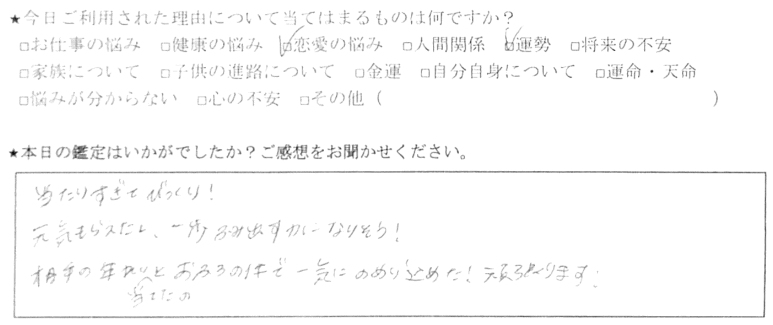 ★今日ご利用された理由について当てはまるものは何ですか？
□お仕事の悩み □健康の悩み ☑恋愛の悩み □人間関係 ☑運勢 □将来の不安
□家族について □子供の進路について □金運 □自分自身について □運命・天命
□悩みが分からない □心の不安 □その他（　　　　　　　　）
★本日の鑑定はいかがでしたか？ご感想をお聞かせください。
当たりすぎてびっくり！
元気もらえたし、一歩ふみ出す力になりそう！
相手の年れいと おみ の件で 一気にのめり込めた！頑張ります！
当てたの